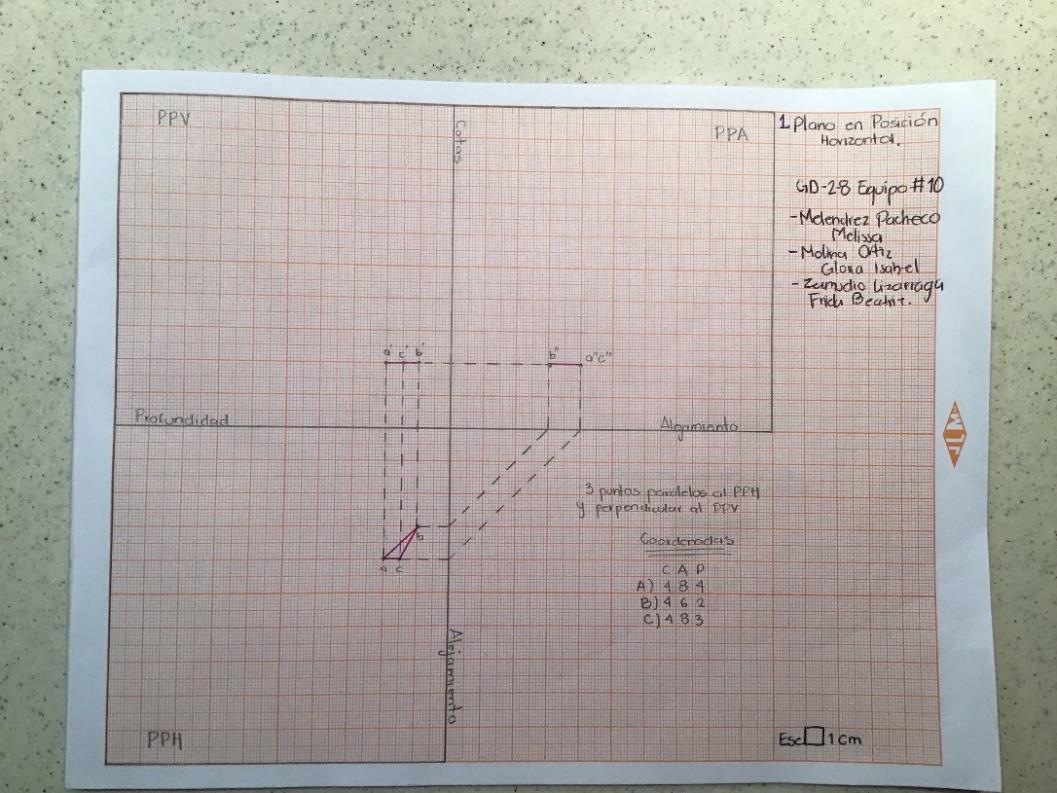 PPV
Cotas
PPA
1 Plano en Posición
Horizontal.
GD-28 Equipo #10
-Melendrez Pacheco
Melissa
-Molina Ortiz
Gloria Isabel
-Zamudio Lizarraga
Frida Beatriz.
a' c' b'
b" a"c"
Profundidad
Alejamiento
JLM
3 puntos paralelos al PPH
y perpendicular al PPV
b
a c
Coordenadas
C A P
A) 4 8 4
B) 4 6 2
C) 4 8 3
Alejamiento
PPH
Esc 1cm